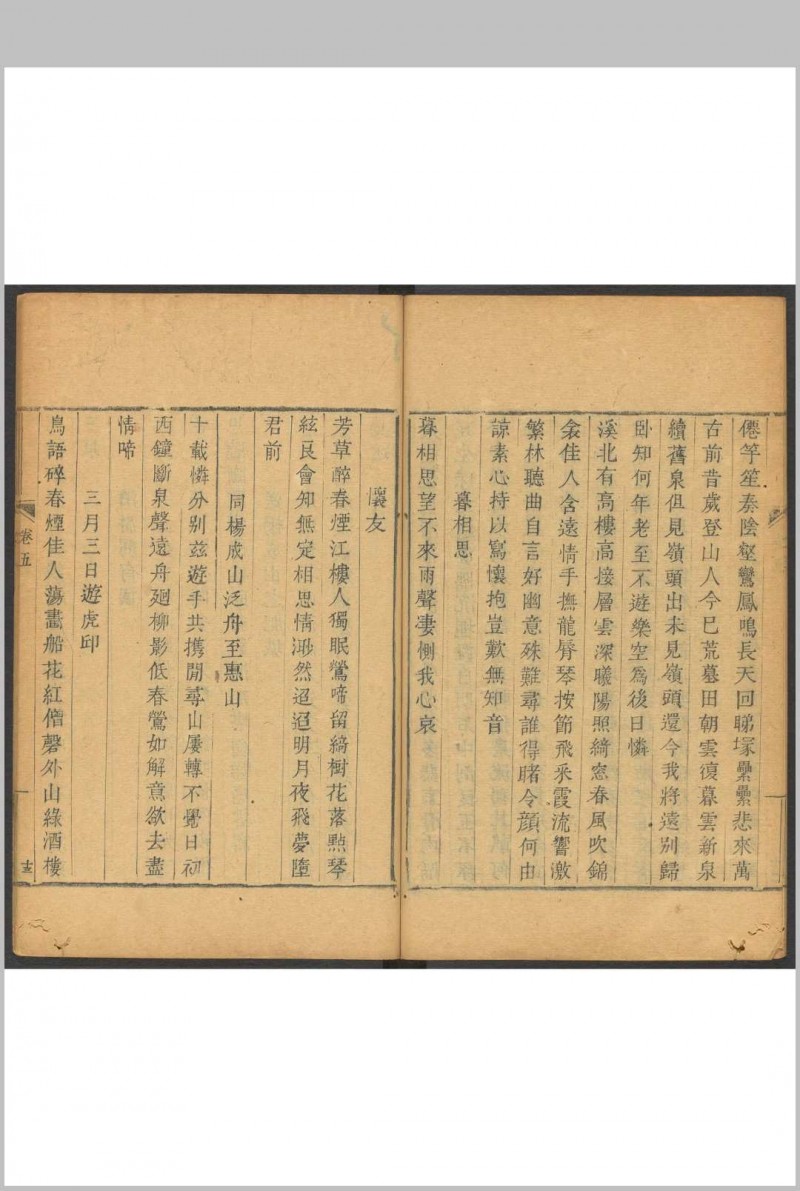 僊竽笙奏陰壑鸞鳳鳴長天回睇塚纍纍悲來萬
古前昔歲登山人今已荒墓田朝雲復暮雲新泉
續舊泉但見嶺頭出未見嶺頭還今我將遠別歸
臥知何年老至不遊樂空爲後日憐
溪北有高樓高接層雲深曦陽照綺窓春風吹錦
衾佳人含遠情手撫龍脣琴按節飛采霞流響激
繁林聽曲自言好幽意殊難尋誰得睹令顔何由
諒素心持以寫懷抱豈歎無知音
暮相思
暮相思望不來雨聲凄惻我心哀
懷友
芳草醉春煙江樓人獨眠鶯啼留綺樹花落㸃琴
絃良會知無定相思情渺然迢迢明月夜飛夢墮
君前
同楊成山泛舟至惠山
十載憐分別兹遊手共携閒尋山屢轉不覺日初
西鐘斷泉聲遠舟廻柳影低春鶯如解意欲去盡
情啼
三月三日遊虎邱
鳥語碎春煙佳人蕩畵船花紅僧磬外山綠酒樓
卷五
十三